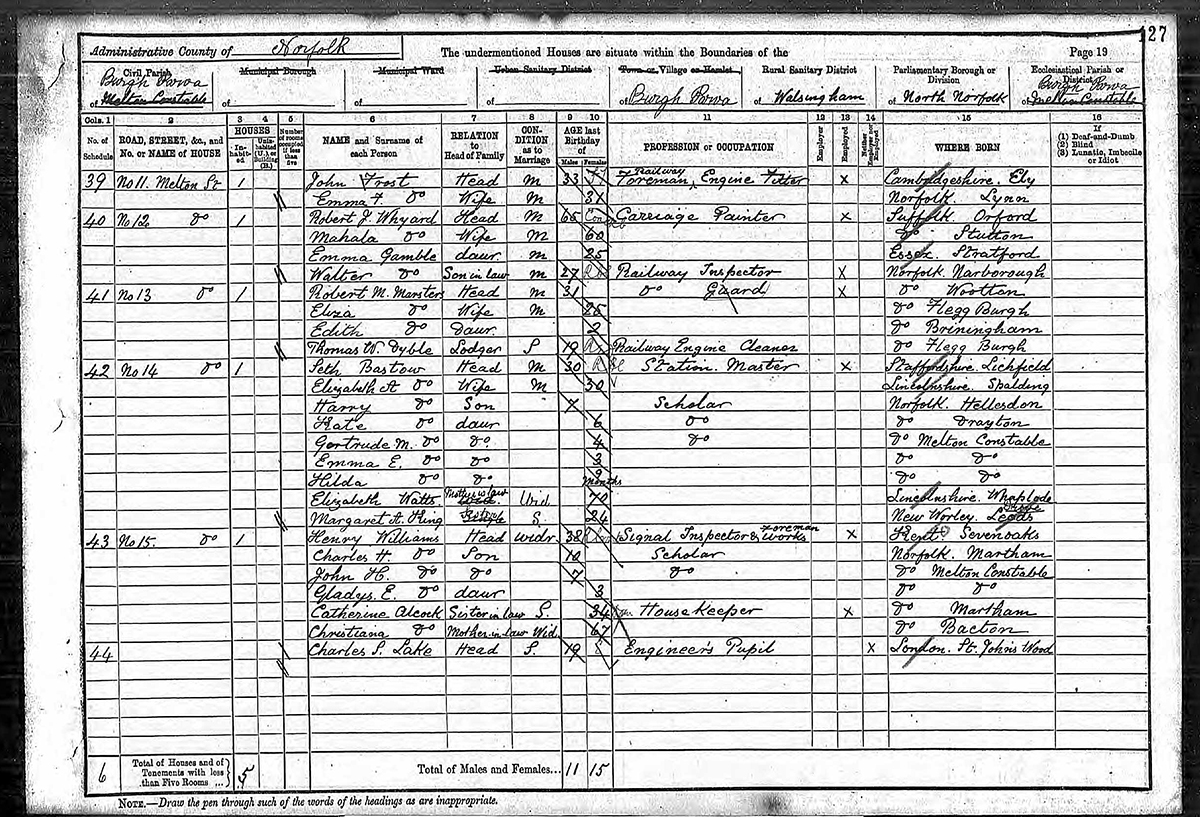 127
Administrative County of Norfolk The undermentioned Houses are situate within the Boundaries of the Page 19
Civil Parish Municipal Borough Municipal Ward Urban Sanitary District Town or Village or Hamlet Rural Sanitary District Parliamentary Borough or Division Ecclesiastical Parish or District
Burgh Parva Burgh Parva
of Melton Constable of of of of Burgh Parva of Walsingham of North Norfolk of Melton Constable
Cols. 1 2 3 4 5 6 7 8 9 10 11 12 13 14 15 16
No. of Schedule ROAD, STREET, &c., and No. or NAME of HOUSE HOUSES Inhabited Uninhabited (U.), or Building (B.) Number of rooms occupied if less than five NAME and Surname of each Person RELATION to Head of Family CONDITION as to Marriage AGE last Birthday of Males Females PROFESSION or OCCUPATION Employer Employed Neither Employer nor Employed WHERE BORN If (1) Deaf-and-Dumb (2) Blind (3) Lunatic, Imbecile or Idiot
39 No 11. Melton St 1 John Frost Head M 33 Railway Foreman, Engine Fitter X Cambridgeshire. Ely
Emma F. Do Wife M 31 Norfolk. Lynn
40 No 12 Do 1 Robert J. Whyard Head M 65 Carriage Painter X Suffolk. Orford
Mahala Do Wife M 60 Do Stutton
Emma Gamble daur M 25 Essex. Stratford
Walter Do Son in law M 27 Railway Inspector X Norfolk. Narborough
41 No 13 Do 1 Robert M. Marsters Head M 31 Do Guard X Do Wootton
Eliza Do Wife M 25 Do Flegg Burgh
Edith Do Daur 2 Do Briningham
Thomas W. Dyble Lodger S 19 Railway Engine Cleaner Do Flegg Burgh
42 No 14 Do 1 Seth Bastow Head M 30 Station. Master X Staffordshire. Lichfield
Elizabeth A Do Wife M 30 Lincolnshire. Spalding
Harry Do Son Scholar Norfolk. Hellesdon
Kate Do daur 6 Do Do Drayton
Gertrude M. Do Do 4 Do Do Melton Constable
Emma E. Do Do 3 Do Do
Hilda Do Do 9 months Do Do
Elizabeth Watts Mother in law Wid. 70 Lincolnshire. Whaplode
Margaret A. King Sister S. 24 New Worley. Leeds
43 No 15. Do 1 Henry Williams Head Widr 38 Signal Inspector & Foreman Works X Kent Sevenoaks
Charles H. Do Son 10 Scholar Norfolk. Martham
John H. Do Do 7 Do Do Melton Constable
Gladys. E. Do daur 3 Do Do
Catherine Alcock Sister in law S. 34 Housekeeper X Do Martham
Christiana Do Mother in law Wid. 67 Do Bacton
44 Charles S. Lake Head S. 19 Engineer's Pupil X London. St. John's Wood
6 Total of Houses and of Tenements with less than Five Rooms ... 5 Total of Males and Females... 11 15
NOTE.—Draw the pen through such of the words of the headings as are inappropriate.